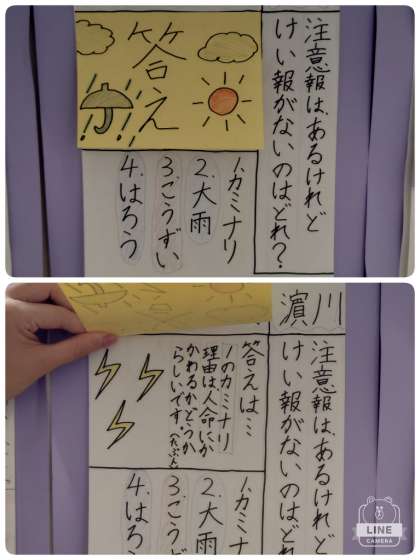 注意報は、あるけれど
けい報がないのはどれ?
答え
1.カミナリ
2.大雨
3.こうずい
4.はろう
濱川
注意報は、あるけれど
けい報がないのはどれ
答えは…
1のカミナリ
理由は人命にか
かわるかどうか
らしいです。(たぶん)
1.カミナリ
2.大雨
3.こうず
4.はろう
LINE
CAMERA